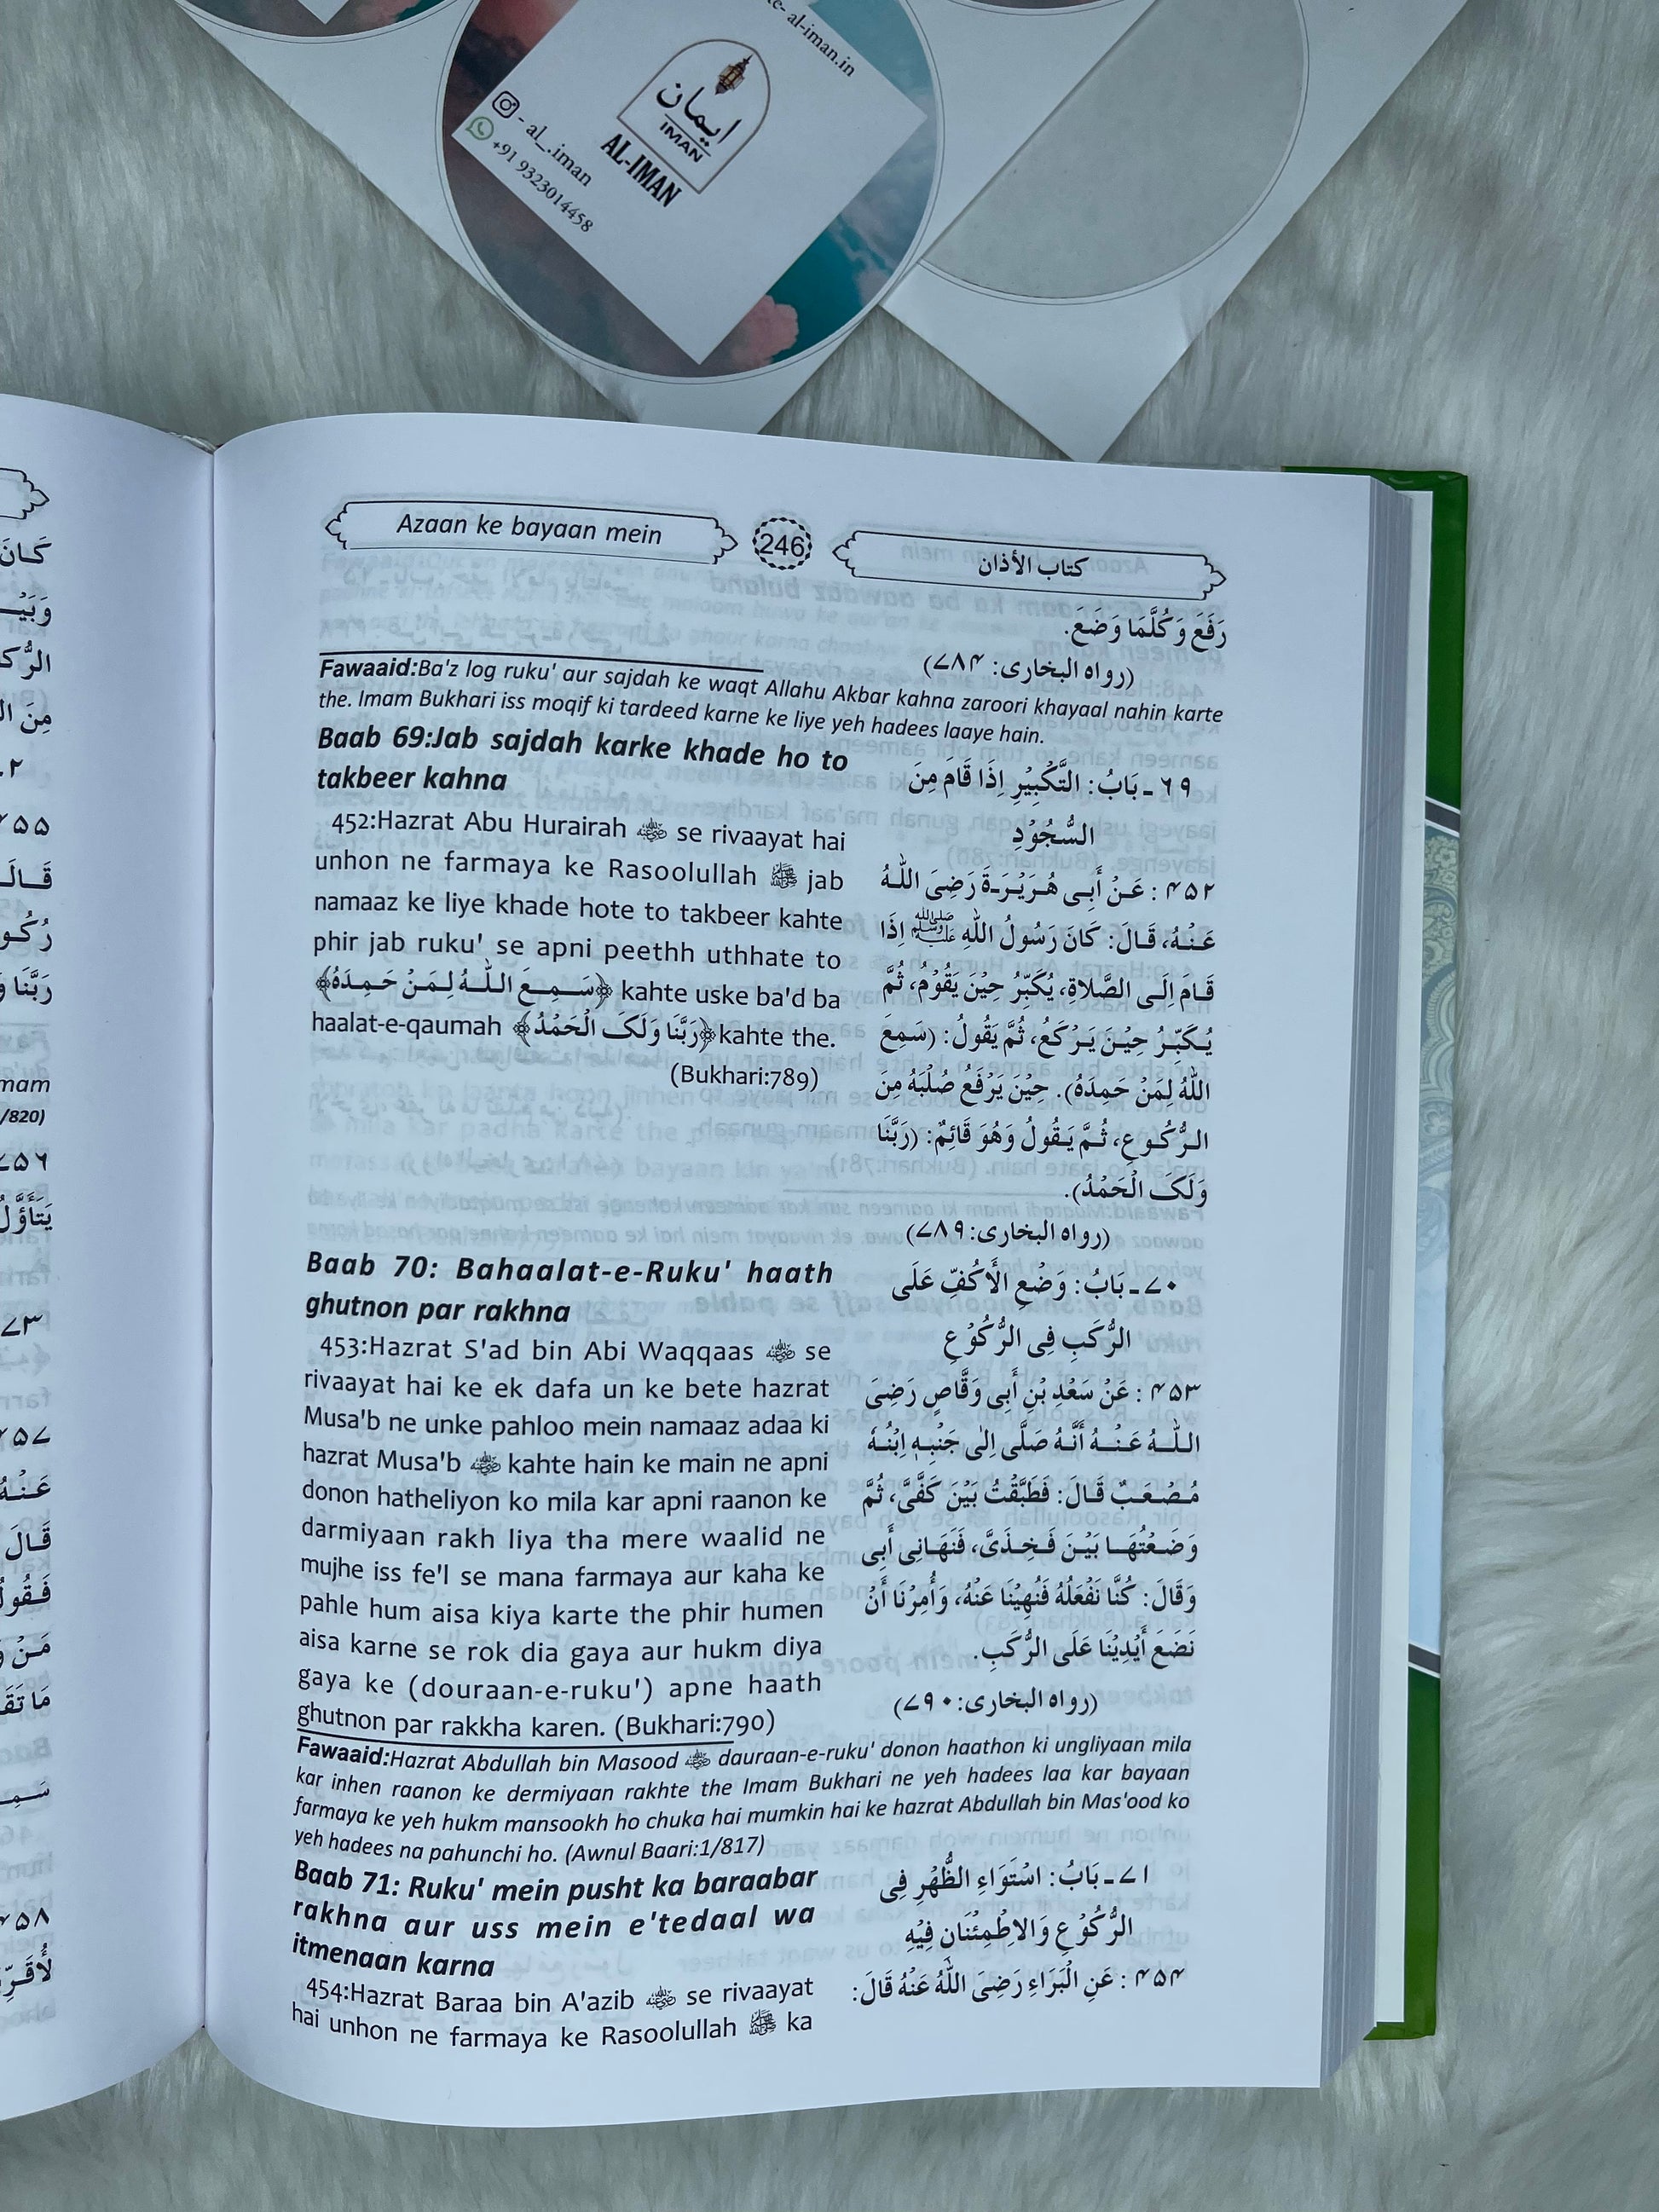 e- al-iman.in
ایمان
IMAN
AL-IMAN
- al_.iman
+91 9323014458
Azaan ke bayaan mein
246
كتاب الأذان
رَفَعَ وَكُلَّمَا وَضَعَ.
(رواه البخاری: ۷۸۴)
Fawaaid:Ba'z log ruku' aur sajdah ke waqt Allahu Akbar kahna zaroori khayaal nahin karte
the. Imam Bukhari iss moqif ki tardeed karne ke liye yeh hadees laaye hain.
Baab 69:Jab sajdah karke khade ho to
takbeer kahna
452:Hazrat Abu Hurairah ؓ se rivaayat hai
unhon ne farmaya ke Rasoolullah ﷺ jab
namaaz ke liye khade hote to takbeer kahte
phir jab ruku' se apni peethh uthhate to
﴿سَمِعَ اللّٰهُ لِمَنْ حَمِدَهُ﴾ kahte uske ba'd ba
haalat-e-qaumah ﴿رَبَّنَا وَلَکَ الْحَمْدُ﴾ kahte the.
(Bukhari:789)
۶۹ ـ بَابُ: التَّكْبِيْرِ اِذَا قَامَ مِنَ
السُّجُوْدِ
۴۵۲ : عَنْ أَبِی هُرَيْرَةَ رَضِیَ اللّٰهُ
عَنْهُ، قَالَ: كَانَ رَسُولُ اللّٰهِ ﷺ اِذَا
قَامَ اِلَی الصَّلاةِ، يُكَبِّرُ حِيْنَ يَقُوْمُ، ثُمَّ
يُكَبِّرُ حِيْنَ يَرْكَعُ، ثُمَّ يَقُولُ: (سَمِعَ
اللّٰهُ لِمَنْ حَمِدَهُ). حِيْنَ يَرْفَعُ صُلْبَهُ مِنَ
الرُّكُوعِ، ثُمَّ يَقُولُ وَهُوَ قَائِمٌ: (رَبَّنَا
وَلَکَ الْحَمْدُ).
(رواه البخاری: ۷۸۹)
Baab 70: Bahaalat-e-Ruku' haath
ghutnon par rakhna
453:Hazrat S'ad bin Abi Waqqaas ؓ se
rivaayat hai ke ek dafa un ke bete hazrat
Musa'b ne unke pahloo mein namaaz adaa ki
hazrat Musa'b ؓ kahte hain ke main ne apni
donon hatheliyon ko mila kar apni raanon ke
darmiyaan rakh liya tha mere waalid ne
mujhe iss fe'l se mana farmaya aur kaha ke
pahle hum aisa kiya karte the phir humen
aisa karne se rok dia gaya aur hukm diya
gaya ke (douraan-e-ruku') apne haath
ghutnon par rakkha karen. (Bukhari:790)
۷۰ ـ بَابُ: وَضْعِ الأَكُفِّ عَلَی
الرُّكَبِ فِی الرُّكُوْعِ
۴۵۳ : عَنْ سَعْدِ بْنِ أَبِی وَقَّاصٍ رَضِیَ
اللّٰهُ عَنْهُ أَنَّهُ صَلَّی اِلٰی جَنْبِهِ اِبْنُهُ
مُصْعَبٌ قَالَ: فَطَبَّقْتُ بَيْنَ كَفَّیَّ، ثُمَّ
وَضَعْتُهَا بَيْنَ فَخِذَیَّ، فَنَهَانِی أَبِی
وَقَالَ: كُنَّا نَفْعَلُهُ فَنُهِيْنَا عَنْهُ، وَأُمِرْنَا أَنْ
نَضَعَ أَيْدِيْنَا عَلَی الرُّكَبِ.
(رواه البخاری: ۷۹۰)
Fawaaid:Hazrat Abdullah bin Masood ؓ dauraan-e-ruku' donon haathon ki ungliyaan mila
kar inhen raanon ke dermiyaan rakhte the Imam Bukhari ne yeh hadees laa kar bayaan
farmaya ke yeh hukm mansookh ho chuka hai mumkin hai ke hazrat Abdullah bin Mas'ood ko
yeh hadees na pahunchi ho. (Awnul Baari:1/817)
Baab 71: Ruku' mein pusht ka baraabar
rakhna aur uss mein e'tedaal wa
itmenaan karna
454:Hazrat Baraa bin A'azib ؓ se rivaayat
hai unhon ne farmaya ke Rasoolullah ﷺ ka
۷۱ ـ بَابُ: اسْتَوَاءِ الظُّهْرِ فِی
الرُّكُوْعِ وَالاِطْمِئْنَانِ فِيْهِ
۴۵۴ : عَنِ الْبَرَاءِ رَضِیَ اللّٰهُ عَنْهُ قَالَ: